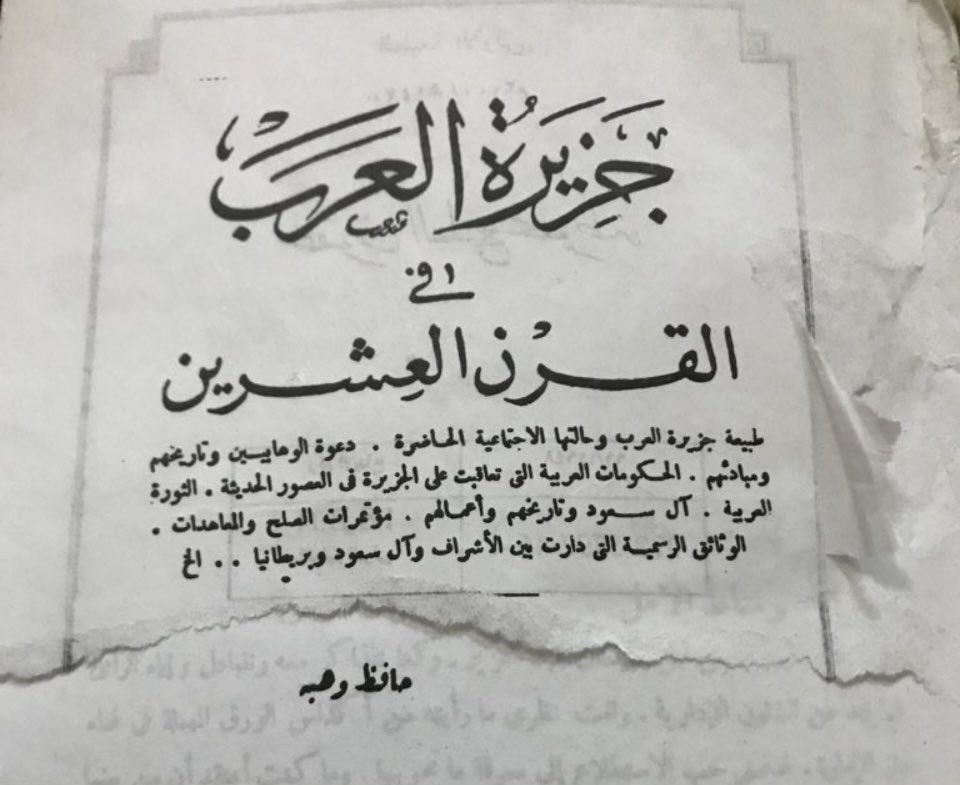 جزيرة العرب
في
القرن العشرين
طبيعة جزيرة العرب وحالتها الاجتماعية الحاضرة . دعوة الوهابيين وتاريخهم
ومبادئهم . الحكومات العربية التى تعاقبت على الجزيرة فى العصور الحديثة . الثورة
العربية . آل سعود وتاريخهم وأعمالهم . مؤتمرات الصلح والمعاهدات .
الوثائق الرسمية التى دارت بين الأشراف وآل سعود وبريطانيا . . الخ
حافظ وهبه